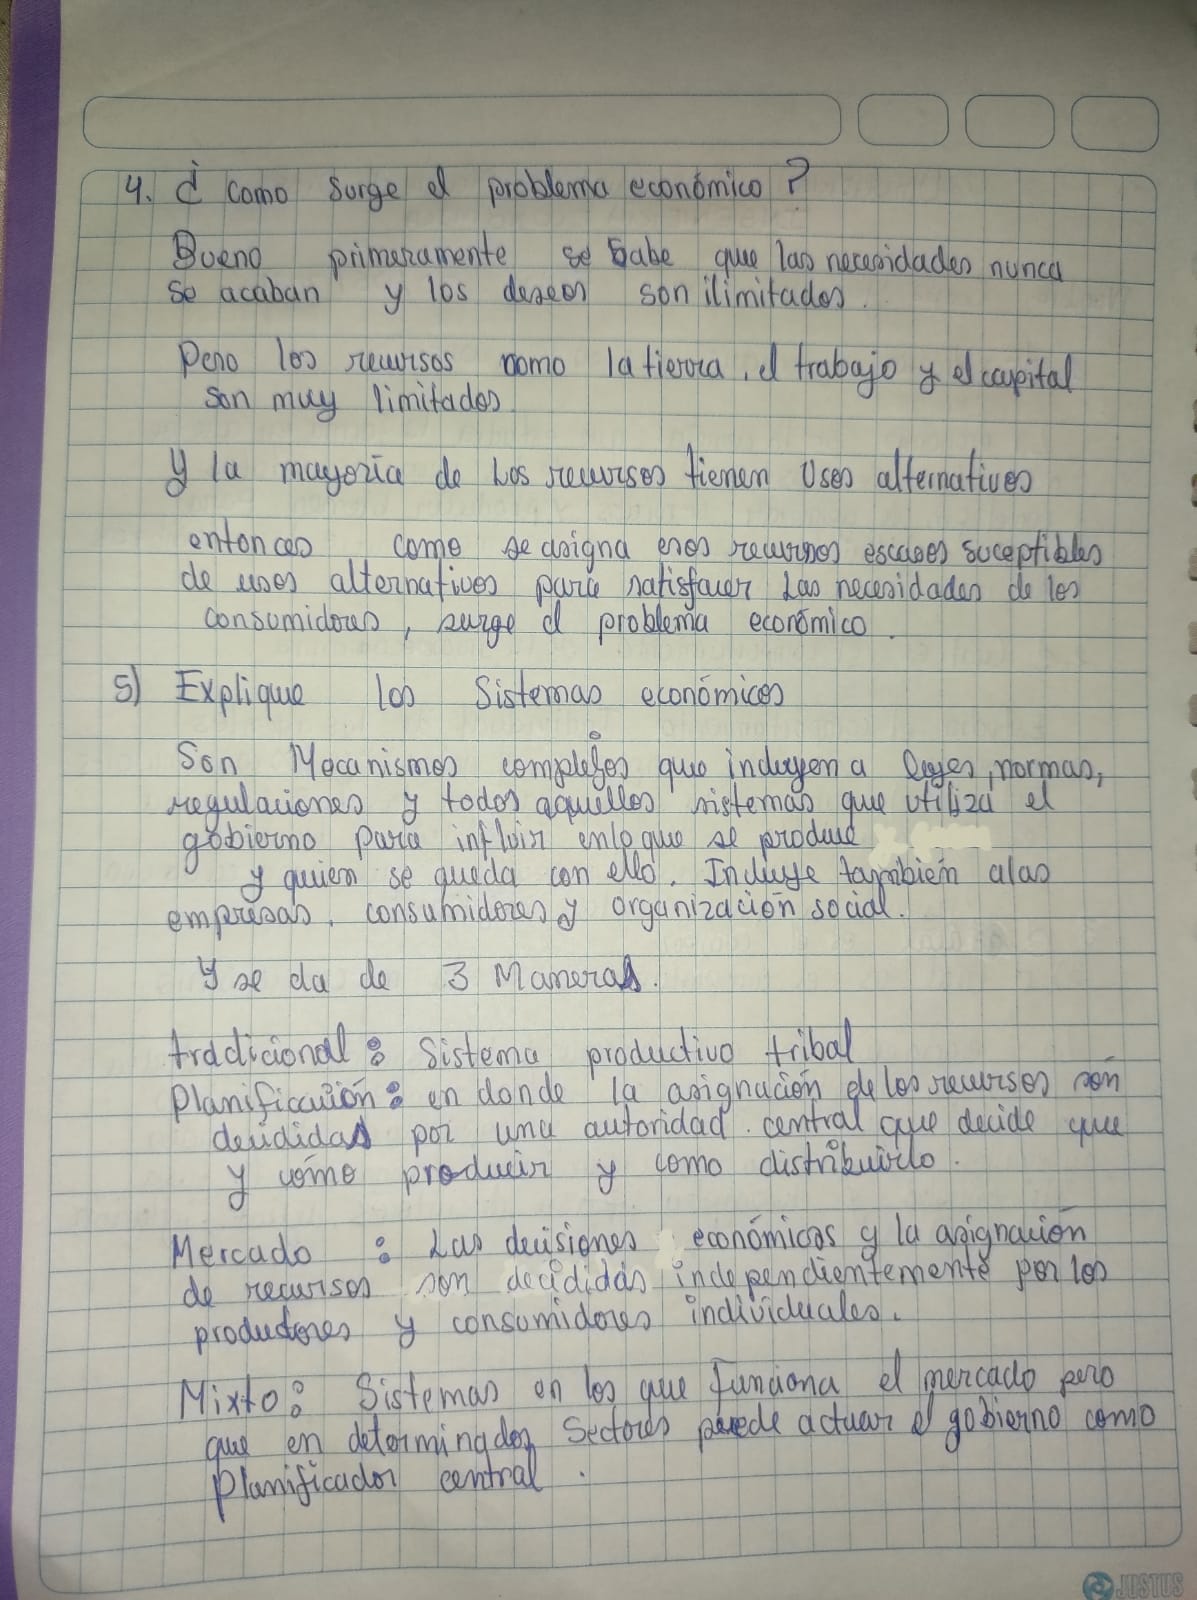 4. ¿ Como surge el problema económico ?
Bueno primeramente se sabe que las necesidades nunca
se acaban y los deseos son ilimitados.
Pero los recursos como la tierra, el trabajo y el capital
son muy limitados
Y la mayoría de los recursos tienen usos alternativos
entonces como se asigna esos recursos escasos suceptibles
de usos alternativos para satisfacer las necesidades de los
consumidores, surge el problema económico.
5) Explique los Sistemas económicos
Son Mecanismos complejos que incluyen a leyes, normas,
regulaciones y todos aquellos sistemas que utiliza el
gobierno para influir en lo que se produce
y quien se queda con ello. Incluye tambien a las
empresas, consumidores y organización social.
Y se da de 3 Maneras.
tradicional: Sistema productivo tribal
Planificación: en donde la asignación de los recursos son
decididas por una autoridad central que decide que
y cómo producir y como distribuirlo.
Mercado : Las decisiones económicas y la asignación
de recursos son decididas independientemente por los
productores y consumidores individuales.
Mixto: Sistemas en los que funciona el mercado pero
que en determinados Sectores puede actuar el gobierno como
planificador central.
JUSTUS